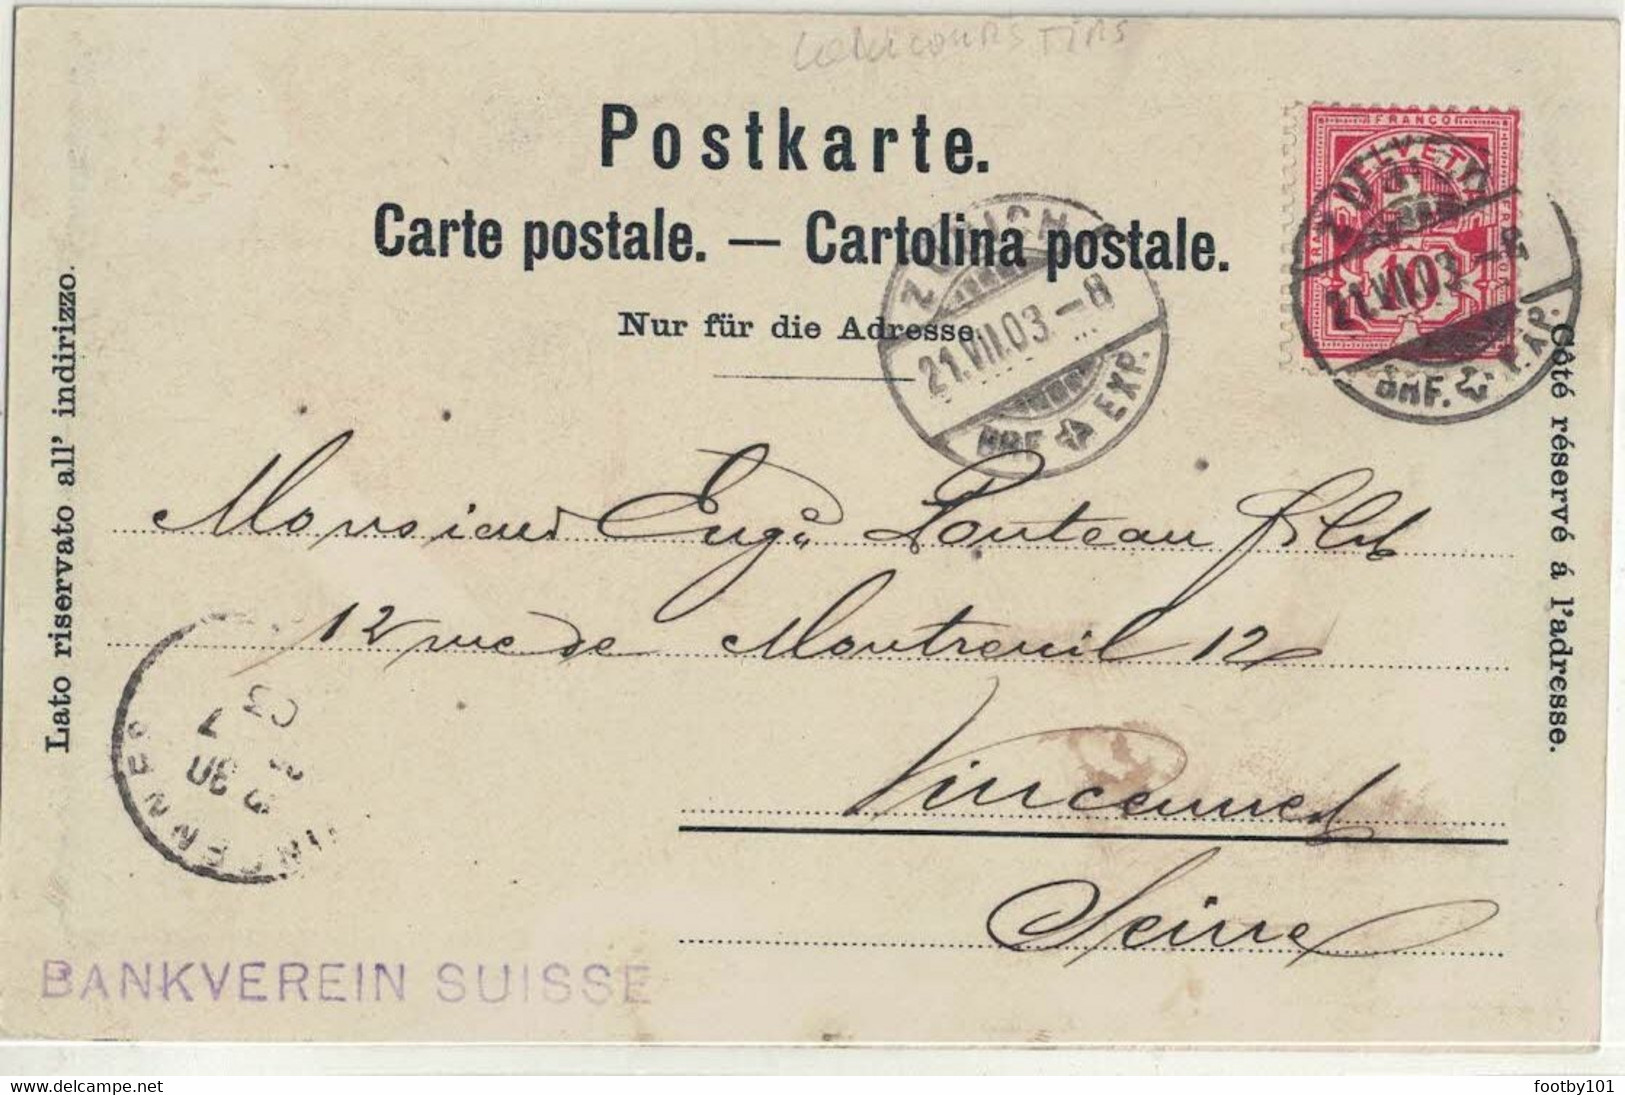 TIRS
Postkarte.
Carte postale. — Cartolina postale.
Nur für die Adresse.
Lato riservato all' indirizzo.
Côté réservé á l'adresse.
FRANCO
HELVETIA
10
ZÜRICH
21.VII.03.-8
BRF. EXP.
ZÜRICH
21.VII.03.-8
BRF. EXP.
Monsieur Eugè Pouteau fils
12 rue de Montreuil 12
Vincennes
Seine
VINCENNES
30
7
03
BANKVEREIN SUISSE
footby101